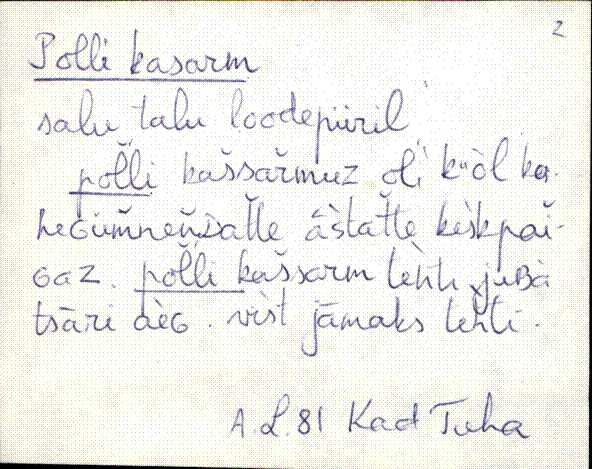 2
Polli kasarm
salu talu loodepiiril
pol̆l̆i kaššar̆muz oli kùòl ka-
heGüm̆neňDat̆t̆e āštat̆t̆e kèskpai-
Gaz. pol̆l̆i kaššarm teh̀ti juBà
tsāri àèG. vist jāmaks tehti.
A.L.81 Kad Tuha